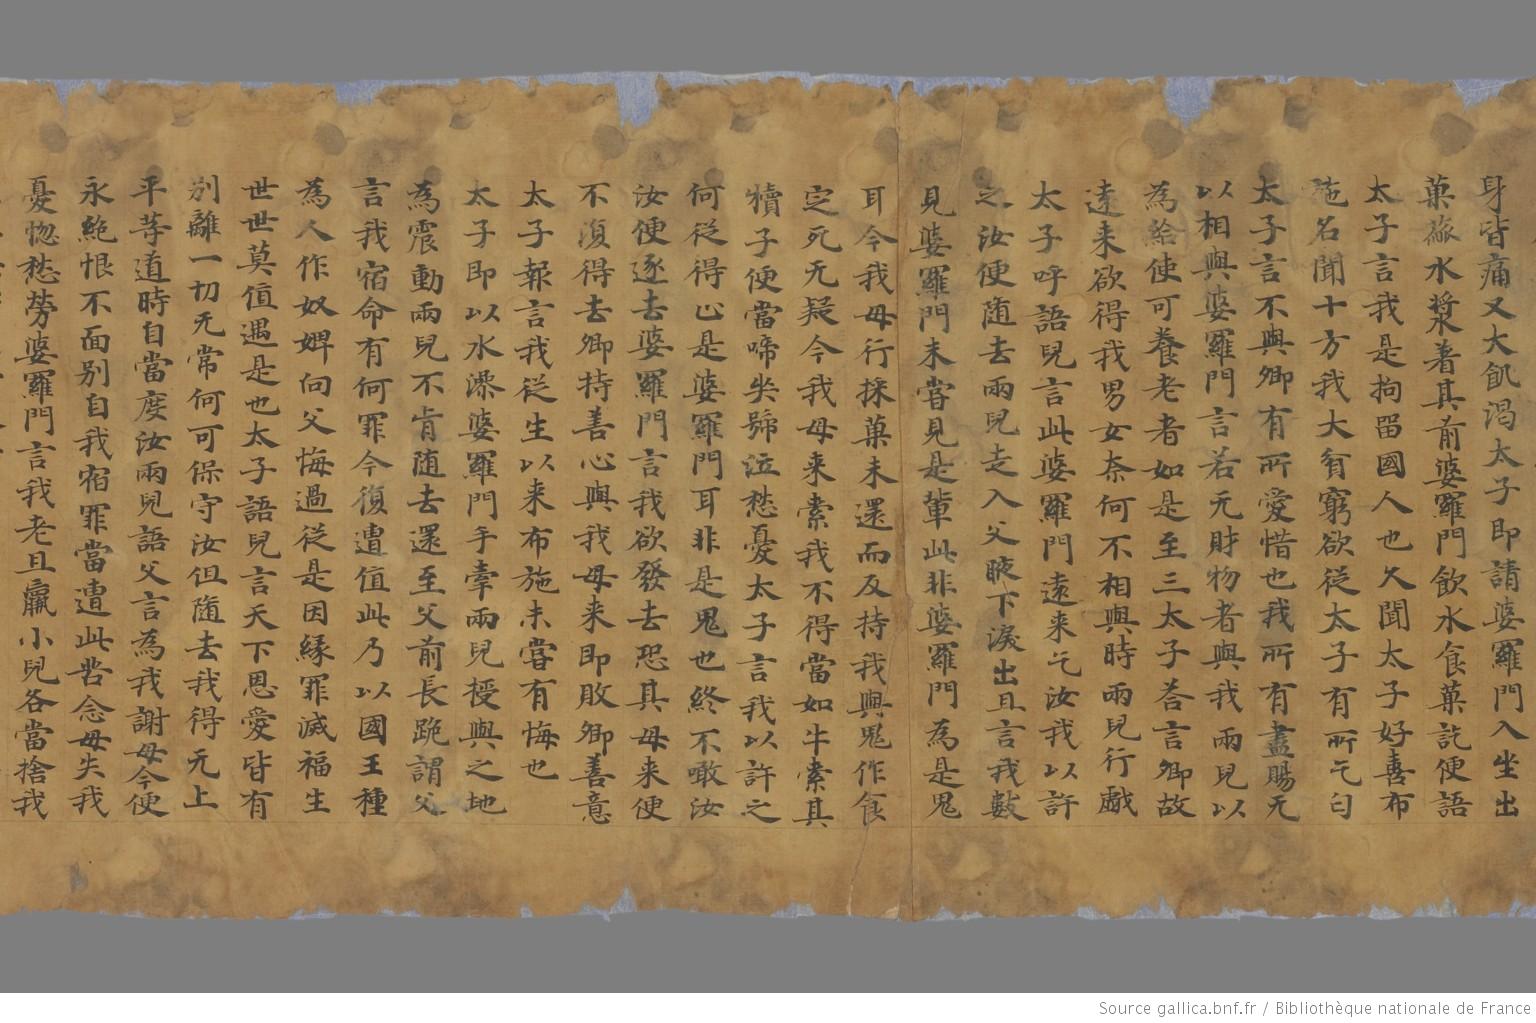 身皆痛又大飢渴太子即請婆羅門入坐出
菓蓏水漿著其前婆羅門飲水食菓訖便語
太子言我是拘留國人也久聞太子好喜布
施名聞十方我大貧窮欲從太子有所乞匃
太子言不與卿有所愛惜也我所有盡賜无
以相與婆羅門言若无財物者與我兩兒以
為給使可養老者如是至三太子荅言卿故
遠来欲得我男女奈何不相與時兩兒行戲
太子呼語兒言此婆羅門遠来乞汝我以許
之汝便随去兩兒走入父腋下淚出且言我數
見婆羅門未甞見是輩此非婆羅門為是鬼
耳今我母行採菓未還而父持我與鬼作食
定死无疑今我母来索我不得當如牛索其
犢子便當啼哭號泣愁憂太子言我以許之
何從得止是婆羅門耳非是鬼也終不噉汝
汝便逐去婆羅門言我欲發去恐其母来便
不復得去卿持善心與我母来即敗卿善意
太子報言我從生以来布施未甞有悔也
太子即以水澡婆羅門手牽兩兒授與之地
為震動兩兒不肯随去還至父前長跪謂父
言我宿命有何罪今復遭值此乃以國王種
為人作奴婢向父悔過從是因緣罪滅福生
世世莫值遇是也太子語兒言天下恩愛皆有
别離一切无常何可保守汝但随去我得无上
平等道時自當度汝兩兒語父言為我謝母今便
永絶恨不面别自我宿罪當遭此苦念母失我
憂惚愁勞婆羅門言我老且羸小兒各當捨我